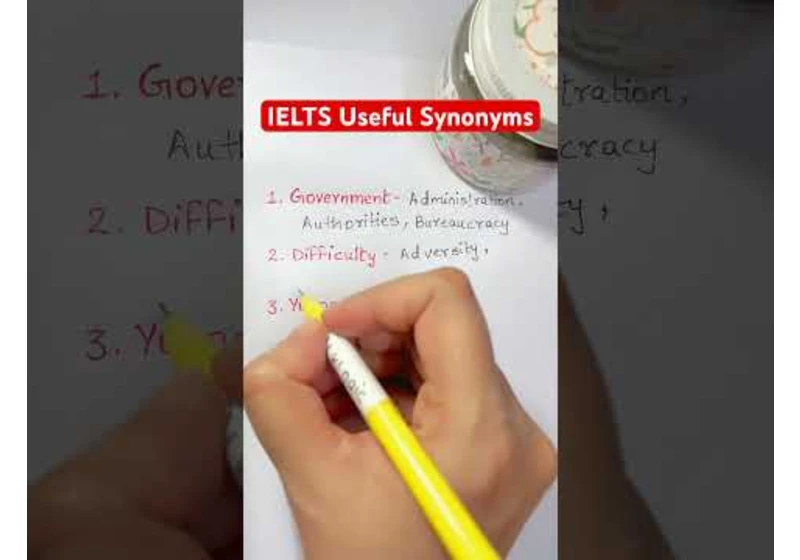 IELTS Useful Synonyms
1. Government - Administration,
Authorities, Bureaucracy
2. Difficulty - Adversity,
3.